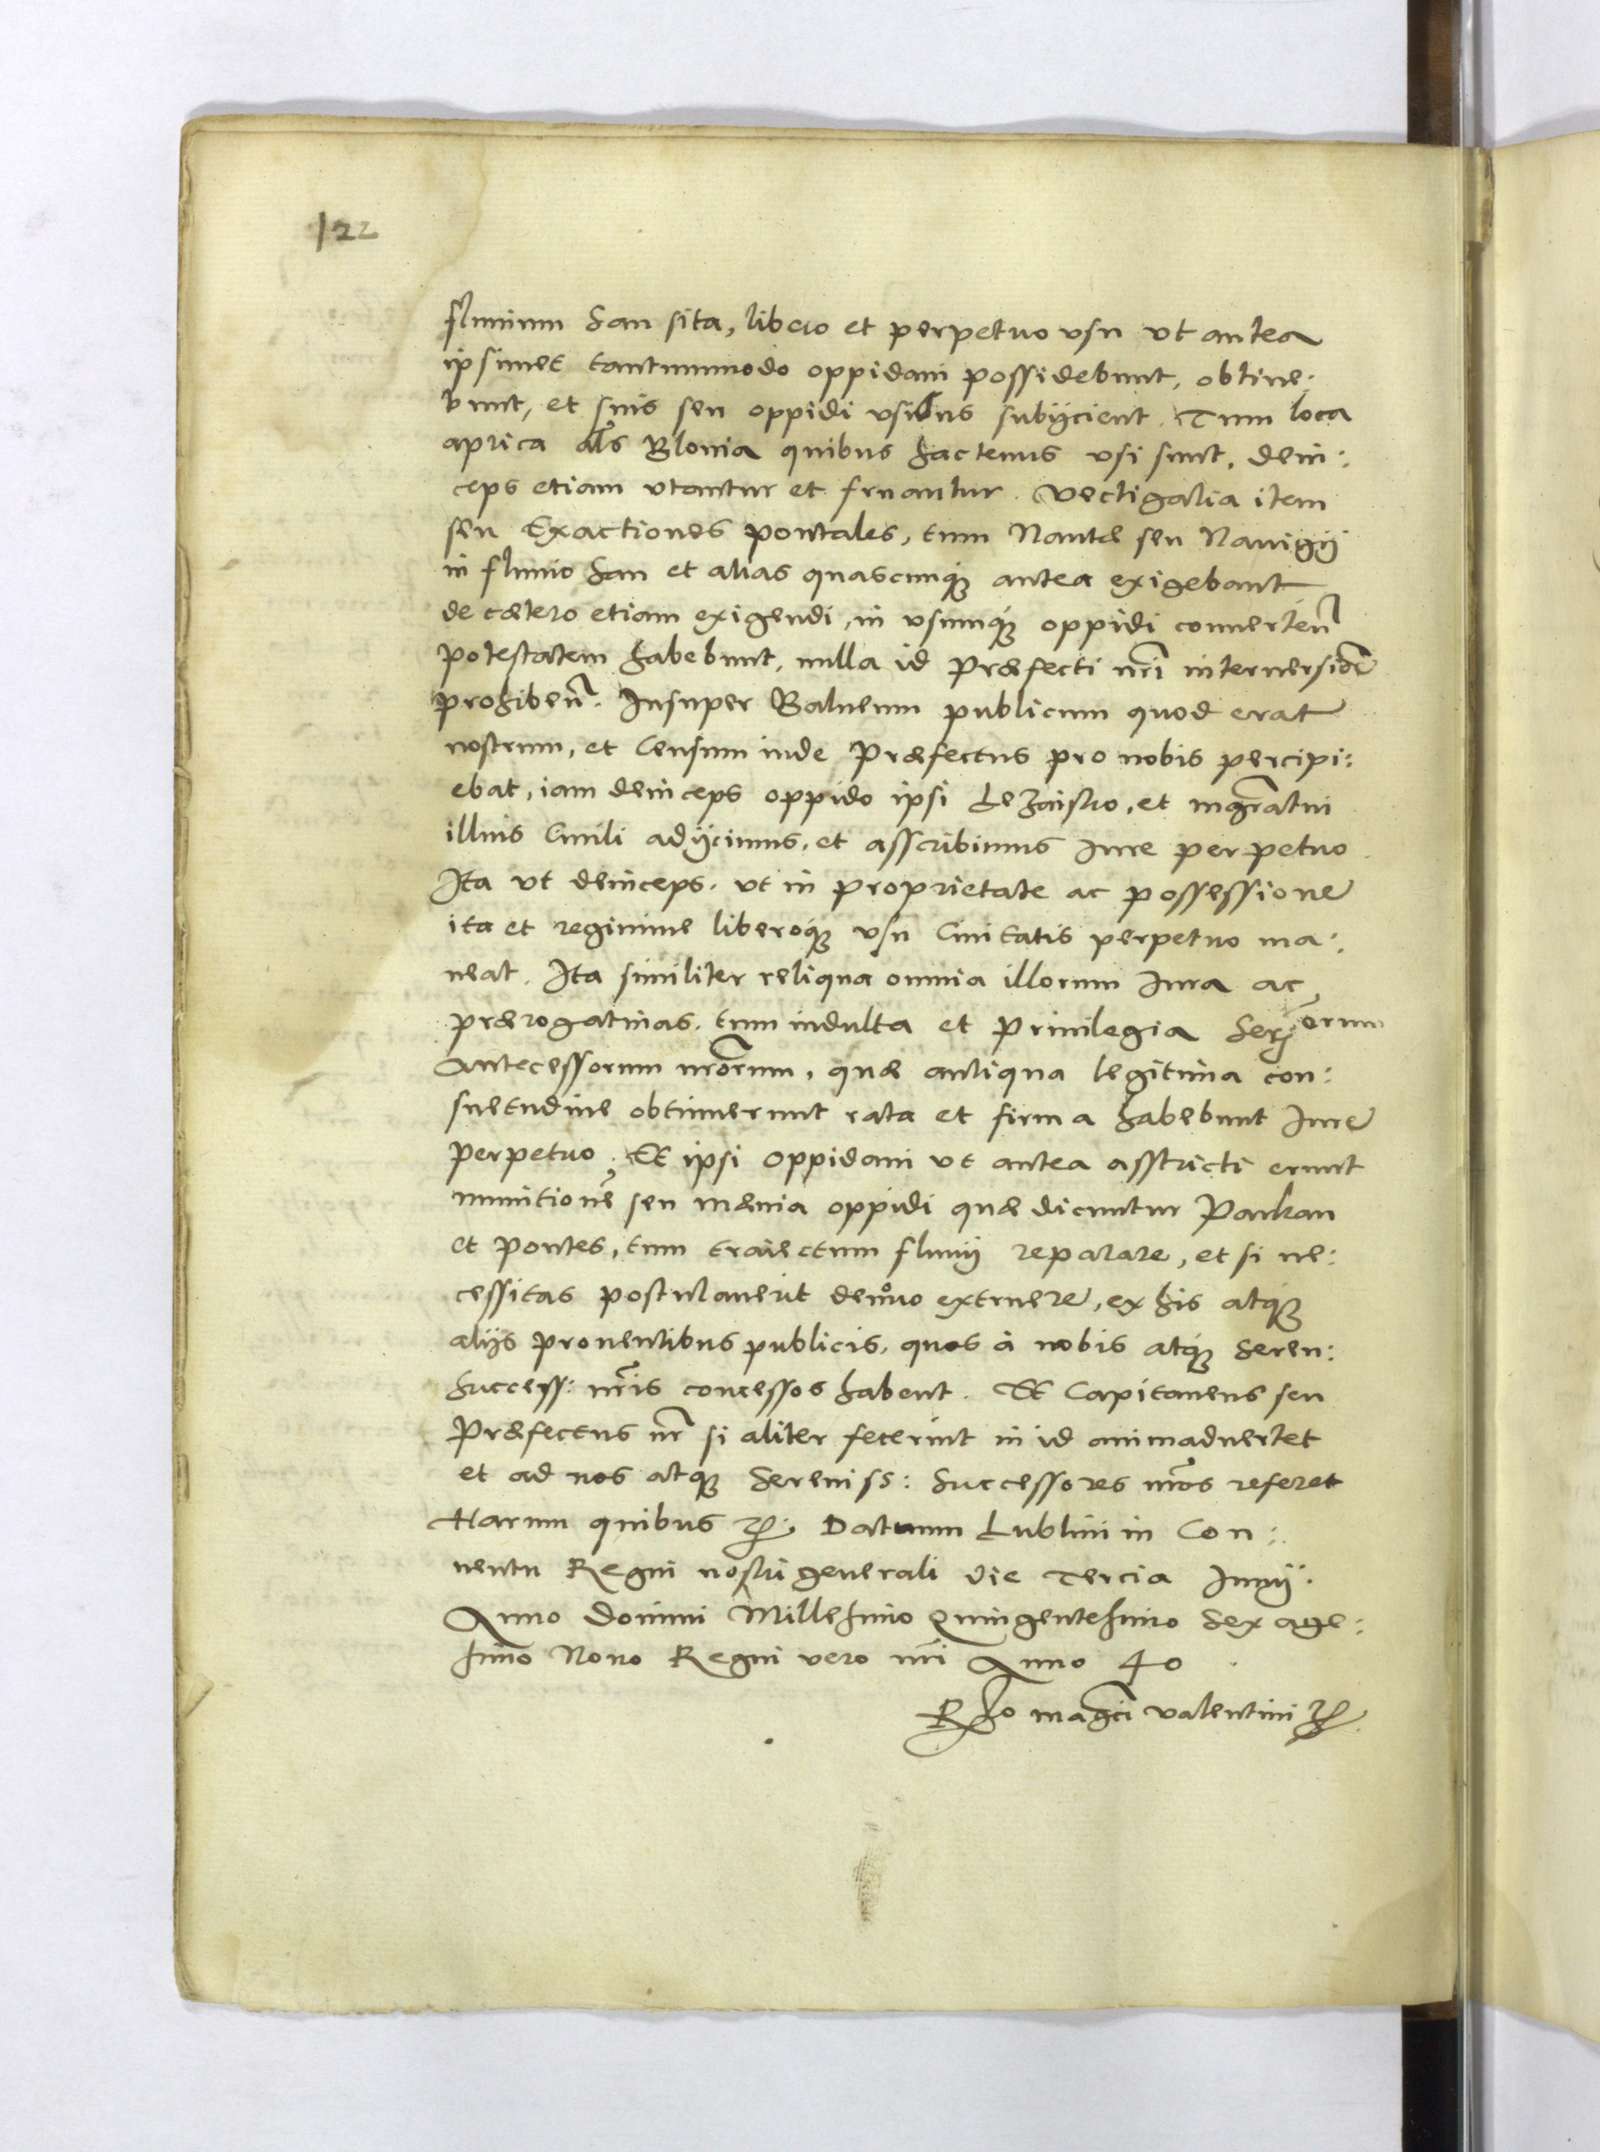 122
fluuium San sita, libero et perpetuo vsu vt antea
ipsimet tantummodo oppidani possidebunt, obtine:
bunt, et suis seu oppidi vsibus subijcient. Tum loca
aprica als Blonia quibus hactenus vsi sunt, dein:
ceps etiam vtantur et fruantur. Vectigalia item
seu Exactiones pontales, tum Nautæ seu Nauigij
in fluuio San et alias quascunque antea exigebant
de cætero etiam exigendi, in vsumque oppidi conuerten
potestatem habebunt, nulla id Præfecti nri interuersione
prohiben. Insuper Balneum publicum quod erat
nostrum, et Censum inde Præfectus pro nobis percipi:
ebat, iam deinceps oppido ipsi Lezaisco, et mgratui
illius Ciuili adijcimus, et asscribimus Iure perpetuo
Ita vt deinceps, vt in proprietate ac possessione
ita et regimine liberoque vsu Ciuitatis perpetuo ma:
neat. Ita similiter reliqua omnia illorum Iura ac
prærogatiuas, tum indulta et Priuilegia Serorum
Antecessorum nrorum, quæ antiqua legitima con:
suetudine obtinuerunt rata et firma habebunt Iure
perpetuo. Et ipsi oppidani vt antea asstricti erunt
munitione seu mænia oppidi quæ dicuntur Parkan
et pontes, tum traiectum fluuij reparare, et si ne:
cessitas postulauerit denuo extruere, ex his atque
alijs prouentibus publicis, quos à nobis atque Seren:
Success: nris concessos habent. Et Capitaneus seu
Præfectus nr si aliter fecerint in id animaduertet
et ad nos atque Sereniss: Successores nros referet
Harum quibus etc. Datum Lublini in Con:
uentu Regni nostri generali die Tercia Iunij.
Anno Domini Millesimo Quingentesimo Sexage:
simo Nono Regni vero nri Anno 40.
Rlo magci Valentini etc.